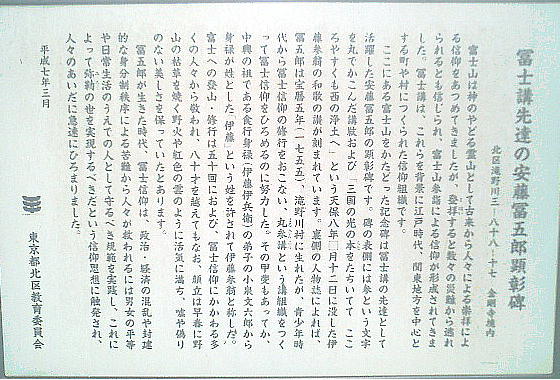 冨士講先達の安藤冨五郎顕彰碑
北区滝野川三-八十八-十七 金剛寺境内
富士山は神のやどる霊山として古来から人々による崇拝によ
る信仰をあつめてきましたが、登拝すると数々の災難から逃れ
られるとも信じられ、富士山参詣による信仰が形成されてきま
した。冨士講は、これらを背景に江戸時代、関東地方を中心と
する町や村につくられた信仰組織です。
ここにある富士山をかたどった記念碑は冨士講の先達として
活躍した安藤冨五郎の顕彰碑です。碑の表側には参という文字
を丸でかこんだ講紋および「三国の光の本をたちいてて こゝ
ろやすくも西の浄土へ」という天保八年 月十二日に没した伊
藤参翁の和歌の讃が刻まれています。裏側の人物誌によれば、
冨五郎は宝暦五年(一七五五)、滝野川村に生れたが、青少年時
代から冨士信仰の修行をおこない、丸参講という講組織をつく
って冨士信仰をひろめるのに努力した。その甲斐もあってか、
中興の祖である食行身禄(伊藤伊兵衛)の弟子の小泉文六郎から
身禄が姓とした「伊藤」という姓を許されて伊藤参翁と称した。
富士への登山・修行は五十回におよび、冨士信仰にかかわる多
くの人々から敬われ、八十才を越えてもなお、顔立は早春に野
山の枯草を焼く野火や紅色の雲のように活気に満ち、嘘や偽り
のない美しさを保っていたとあります。
冨五郎が生きた時代、冨士信仰は、政治・経済の混乱や封建
的な身分制秩序による苦難から人々が救われるには男女の平等
や日常生活のうえでの人として守るべき規範を実践し、これに
よって弥勒の世を実現するべきだという信仰思想に触発され、
人々のあいだに急速にひろまりました。
平成七年三月
東京都北区教育委員会